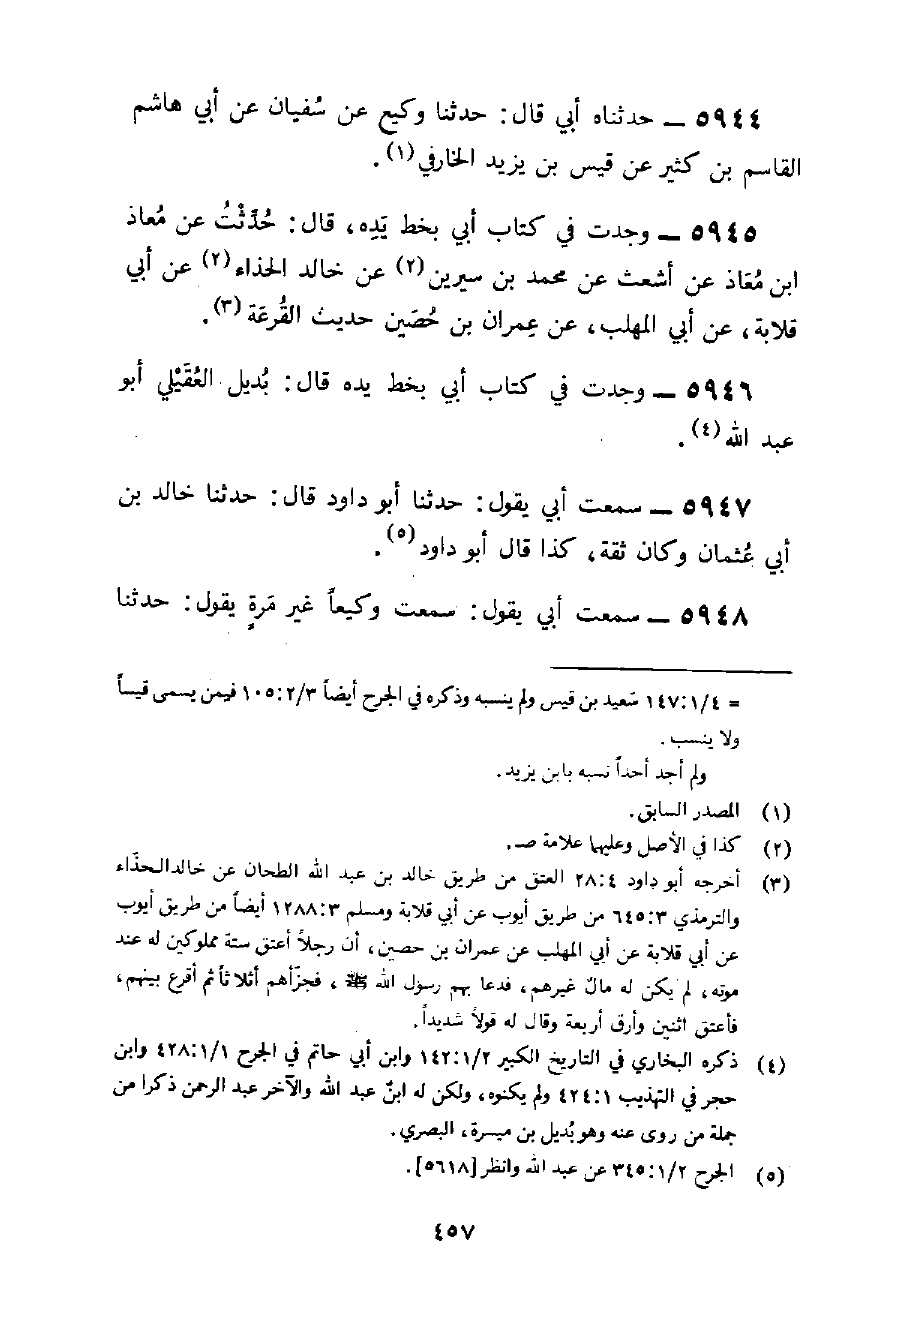 ٥٩٤٤ ــ حدثناه أبي قال: حدثنا وكيع عن سُفيان عن أبي هاشم
القاسم بن كثير عن قيس بن يزيد الخارفي(١).
٥٩٤٥ ــ وجدت في كتاب أبي بخط يَدِه، قال: حُدِّثْتُ عن مُعاذ
ابن مُعَاذ عن أشعث عن محمد بن سيرين(٢) عن خالد الحذاء(٢) عن أبي
قلابة، عن أبي المهلب، عن عِمران بن حُصَين حديث القُرعَة(٣).
٥٩٤٦ ــ وجدت في كتاب أبي بخط يده قال: بُديل العُقَيْلي أبو
عبد الله(٤).
٥٩٤٧ ــ سمعت أبي يقول: حدثنا أبو داود قال: حدثنا خالد بن
أبي عُثمان وكان ثقة، كذا قال أبو داود(٥).
٥٩٤٨ ــ سمعت أبي يقول: سمعت وكيعاً غير مَرةٍ يقول: حدثنا
= ١٤٧:١/٤ سَعيد بن قيس ولم ينسبه وذكره في الجرح أيضاً ١٠٥:٢/٣ فيمن يسمى قيساً
ولا ينسب.
ولم أجد أحداً نسبه بابن يزيد.
(١) المصدر السابق.
(٢) كذا في الأصل وعليها علامة صـ.
(٣) أخرجه أبو داود ٢٨:٤ العتق من طريق خالد بن عبد الله الطحان عن خالد الحذّاء
والترمذي ٦٤٥:٣ من طريق أيوب عن أبي قلابة ومسلم ١٢٨٨:٣ أيضاً من طريق أيوب
عن أبي قلابة عن أبي المهلب عن عمران بن حصين، أن رجلاً أعتق ستة مملوكين له عند
موته، لم يكن له مالٌ غيرهم، فدعا بهم رسول الله ﷺ، فجزّأهم أثلاثاً ثم أقرع بينهم،
فأعتق اثنين وأرق أربعة وقال له قولاً شديداً.
(٤) ذكره البخاري في التاريخ الكبير ١٤٢:١/٢ وابن أبي حاتم في الجرح ٤٢٨:١/١ وابن
حجر في التهذيب ٤٢٤:١ ولم يكنوه، ولكن له ابنٌ عبد الله والآخر عبد الرحمن ذكرا من
جملة من روى عنه وهو بُديل بن ميسرة، البصري.
(٥) الجرح ٣٤٥:١/٢ عن عبد الله وانظر [٥٦١٨].
٤٥٧